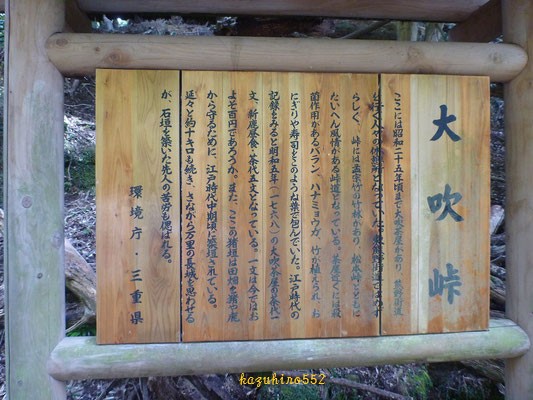 大吹峠
ここには昭和二十五年頃まで大吹茶屋があり、熊野街道
を行く人々の休憩所となっていた。熊野街道ではめず
らしく、峠には孟宗竹の竹林があり、松本峠とともに
たいへん風情がある峠道となっている。茶屋近くには殺
菌作用があるバラン、ハナミョウガ、竹が植えられ、お
にぎりや寿司をこのような葉で包んでいた。江戸時代の
記録をみると明和五年（一七六八）の大吹茶屋の茶代一
文、新座昼食・茶代五文となっている。一文は今ではお
よそ百円であろうか。また、ここの猪垣は田畑を猪や鹿
から守るために、江戸時代中期頃に築垣されている。
延々と約十キロも続き、さながら万里の長城を思わせる
が、石垣を築いた先人の苦労も偲ばれる。
環境庁・三重県
kazuhiro552